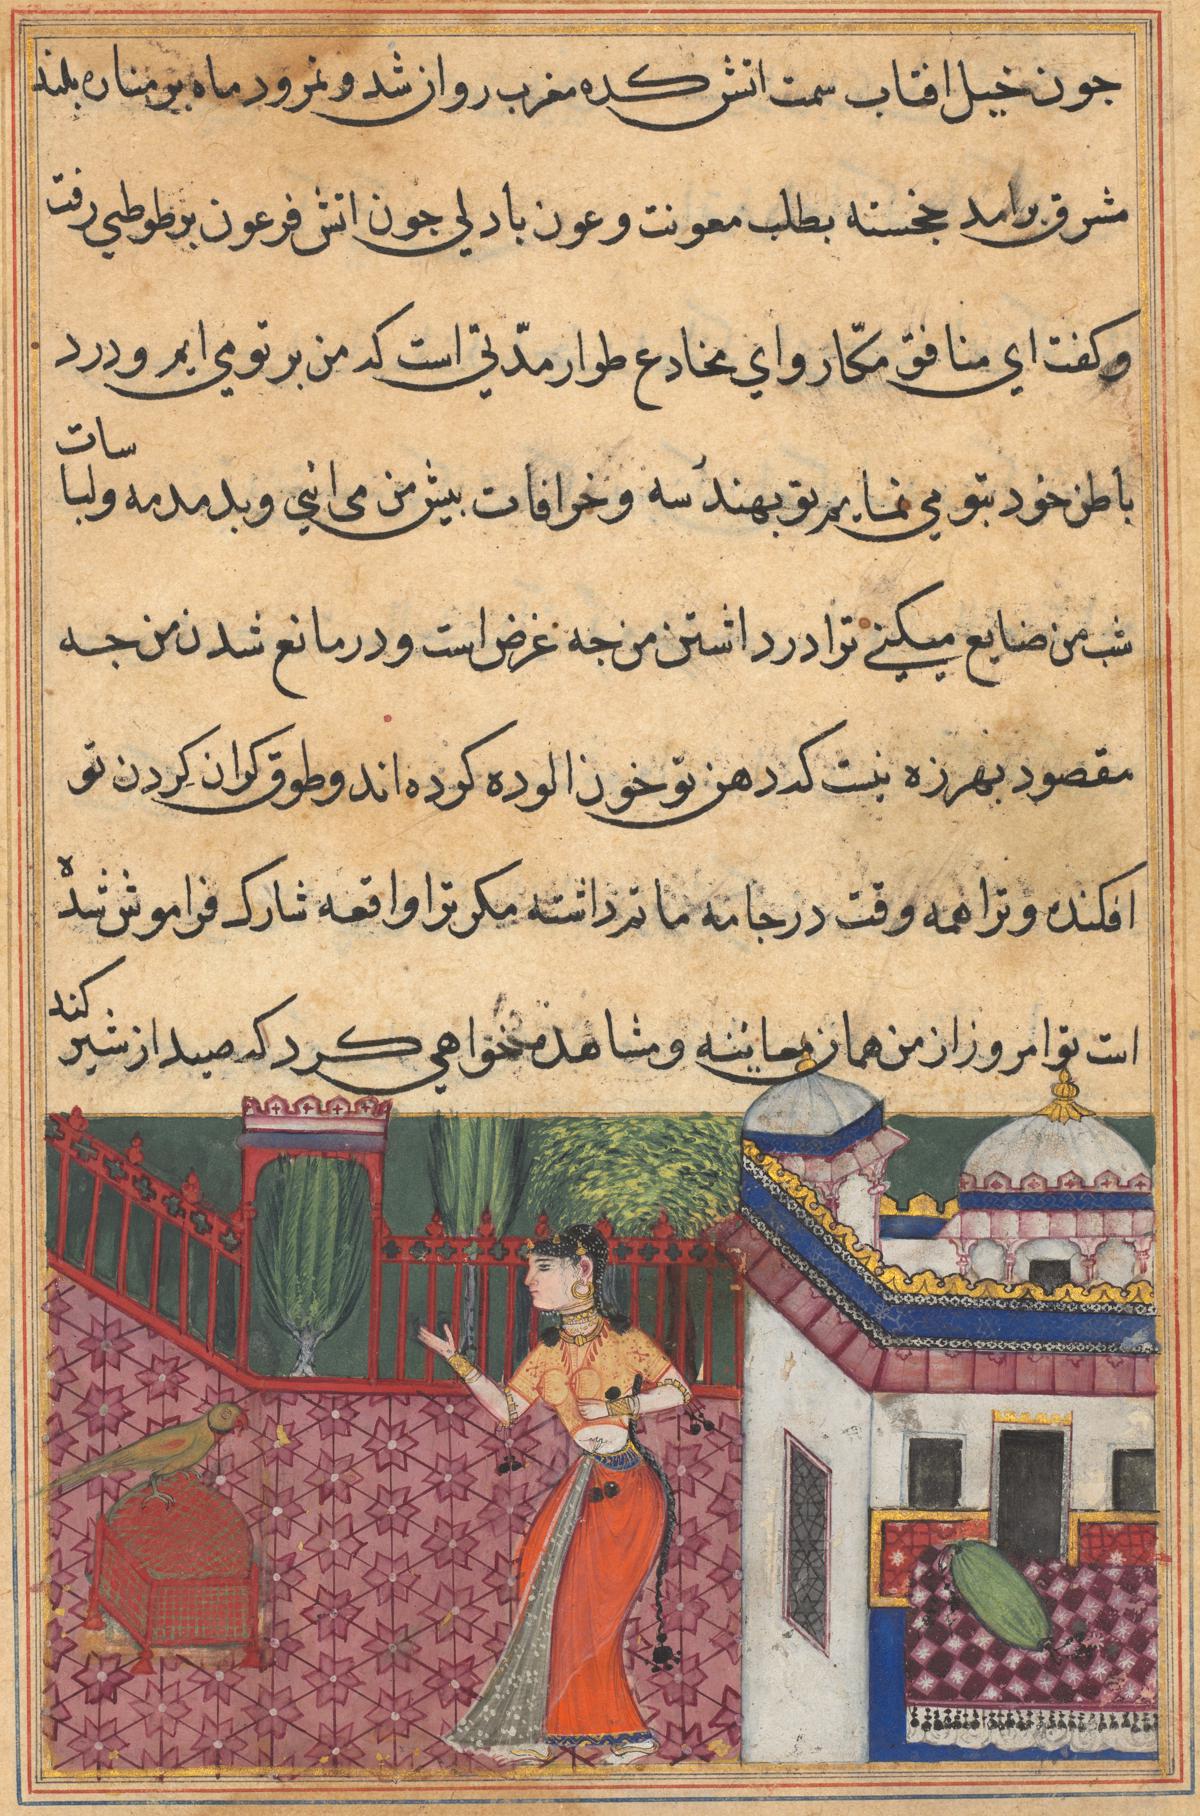 جون خیل افتاب سمت اتش کده مغرب روان شد و نمرود ماه بر مناره بلند
مشرق برامد خجسته بطلب معونت و عون بادلی جون اتش فرعون بر طوطی رفت
و کفت ای منافق مکّار و ای مخادع طرار مدّتی است که من بر تو می ایم و درد
باطن خود بتو می نمایم تو بهندسه و خرافات بیش من می ائی و بدمدمه و لباسات
شب من ضایع میکنی ترا در داشتن من جه غرض است و در مانع شدن من جه
مقصود بهرزه نیست که دهن تو خون الوده کرده اند و طوق کران کردن تو
افکنده و ترا همه وقت در جامه ماتم داشته مکر ترا واقعه شارک فراموش شده
است تو امروز از من همان معاینه و مشاهده خواهی کرد که صید از شیر کند